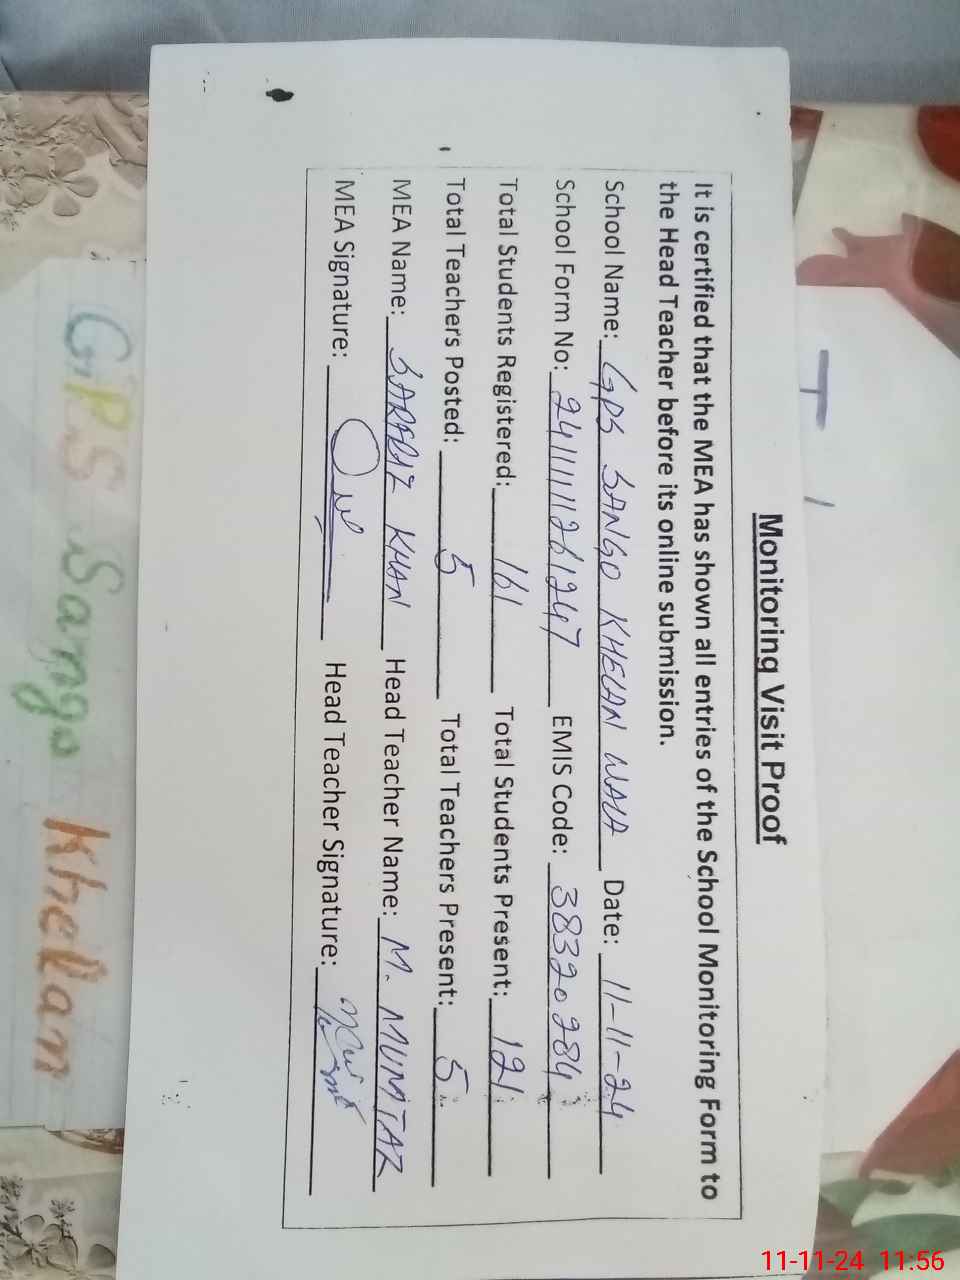 Monitoring Visit Proof
It is certified that the MEA has shown all entries of the School Monitoring Form to
the Head Teacher before its online submission.
School Name: GPS SANGO KHELAN WALA Date: 11-11-24
School Form No: 2411111261247 EMIS Code: 38320284
Total Students Registered: 161 Total Students Present: 121
Total Teachers Posted: 5 Total Teachers Present: 5
MEA Name: SARFRAZ KHAN Head Teacher Name: M. MUMTAZ
MEA Signature: Head Teacher Signature:
GPS Sango Khelan
11-11-24 11:56